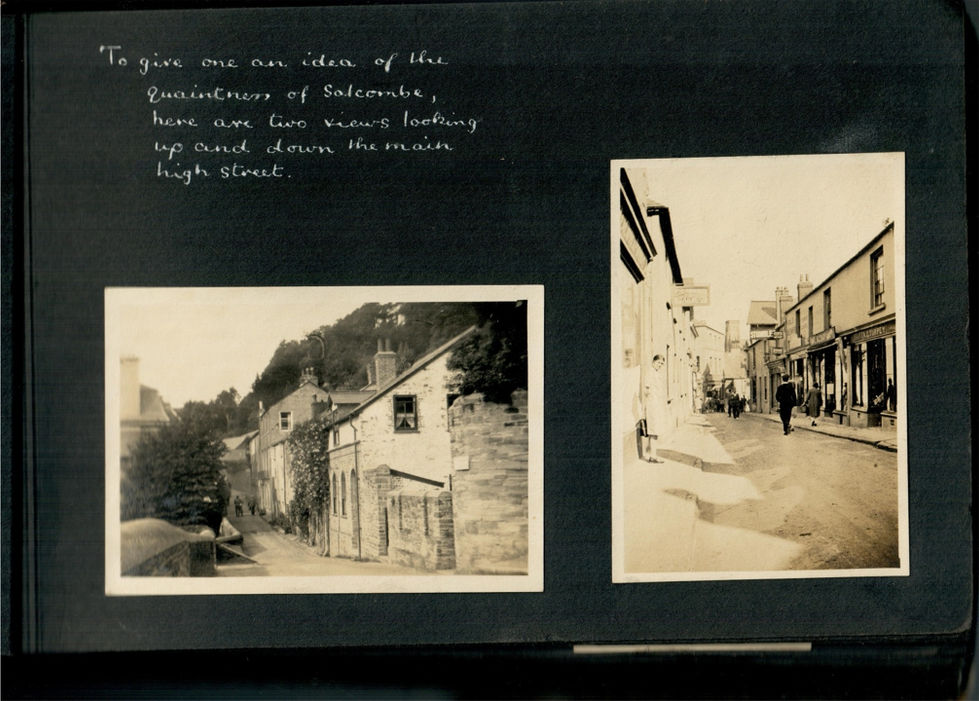 To give one an idea of the
quaintness of Salcombe,
here are two views looking
up and down the main
high street.